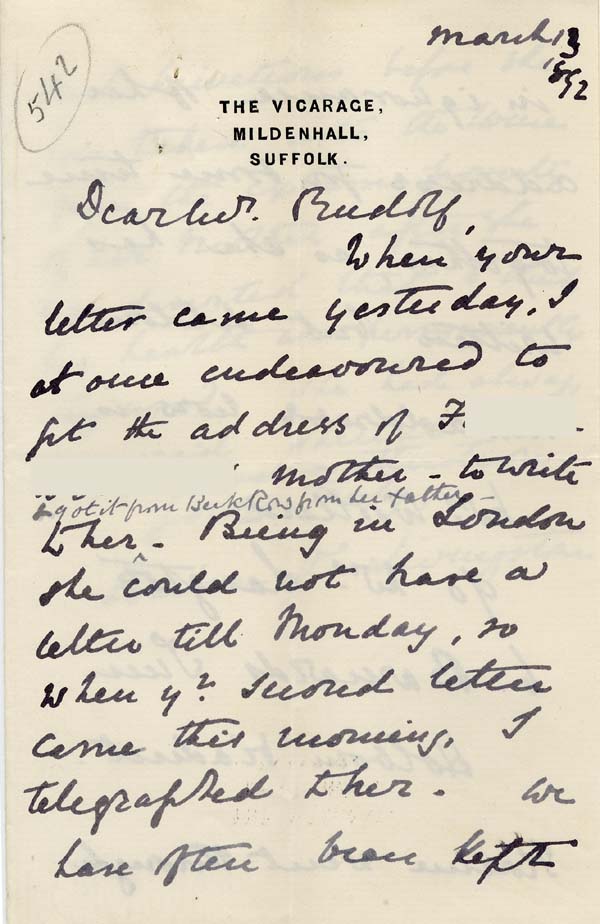 542
March 13
1892
THE VICARAGE,
MILDENHALL,
SUFFOLK.
Dear Mr. Rudolf,
When your
letter came yesterday, I
at once endeavoured to
get the address of F.
mother - to write
I got it from Beck Row from her father -
to her - Being in London
she ^ could not have a
letter till Monday, so
when yr. second letter
came this morning, I
telegraphed to her. We
have often been kept